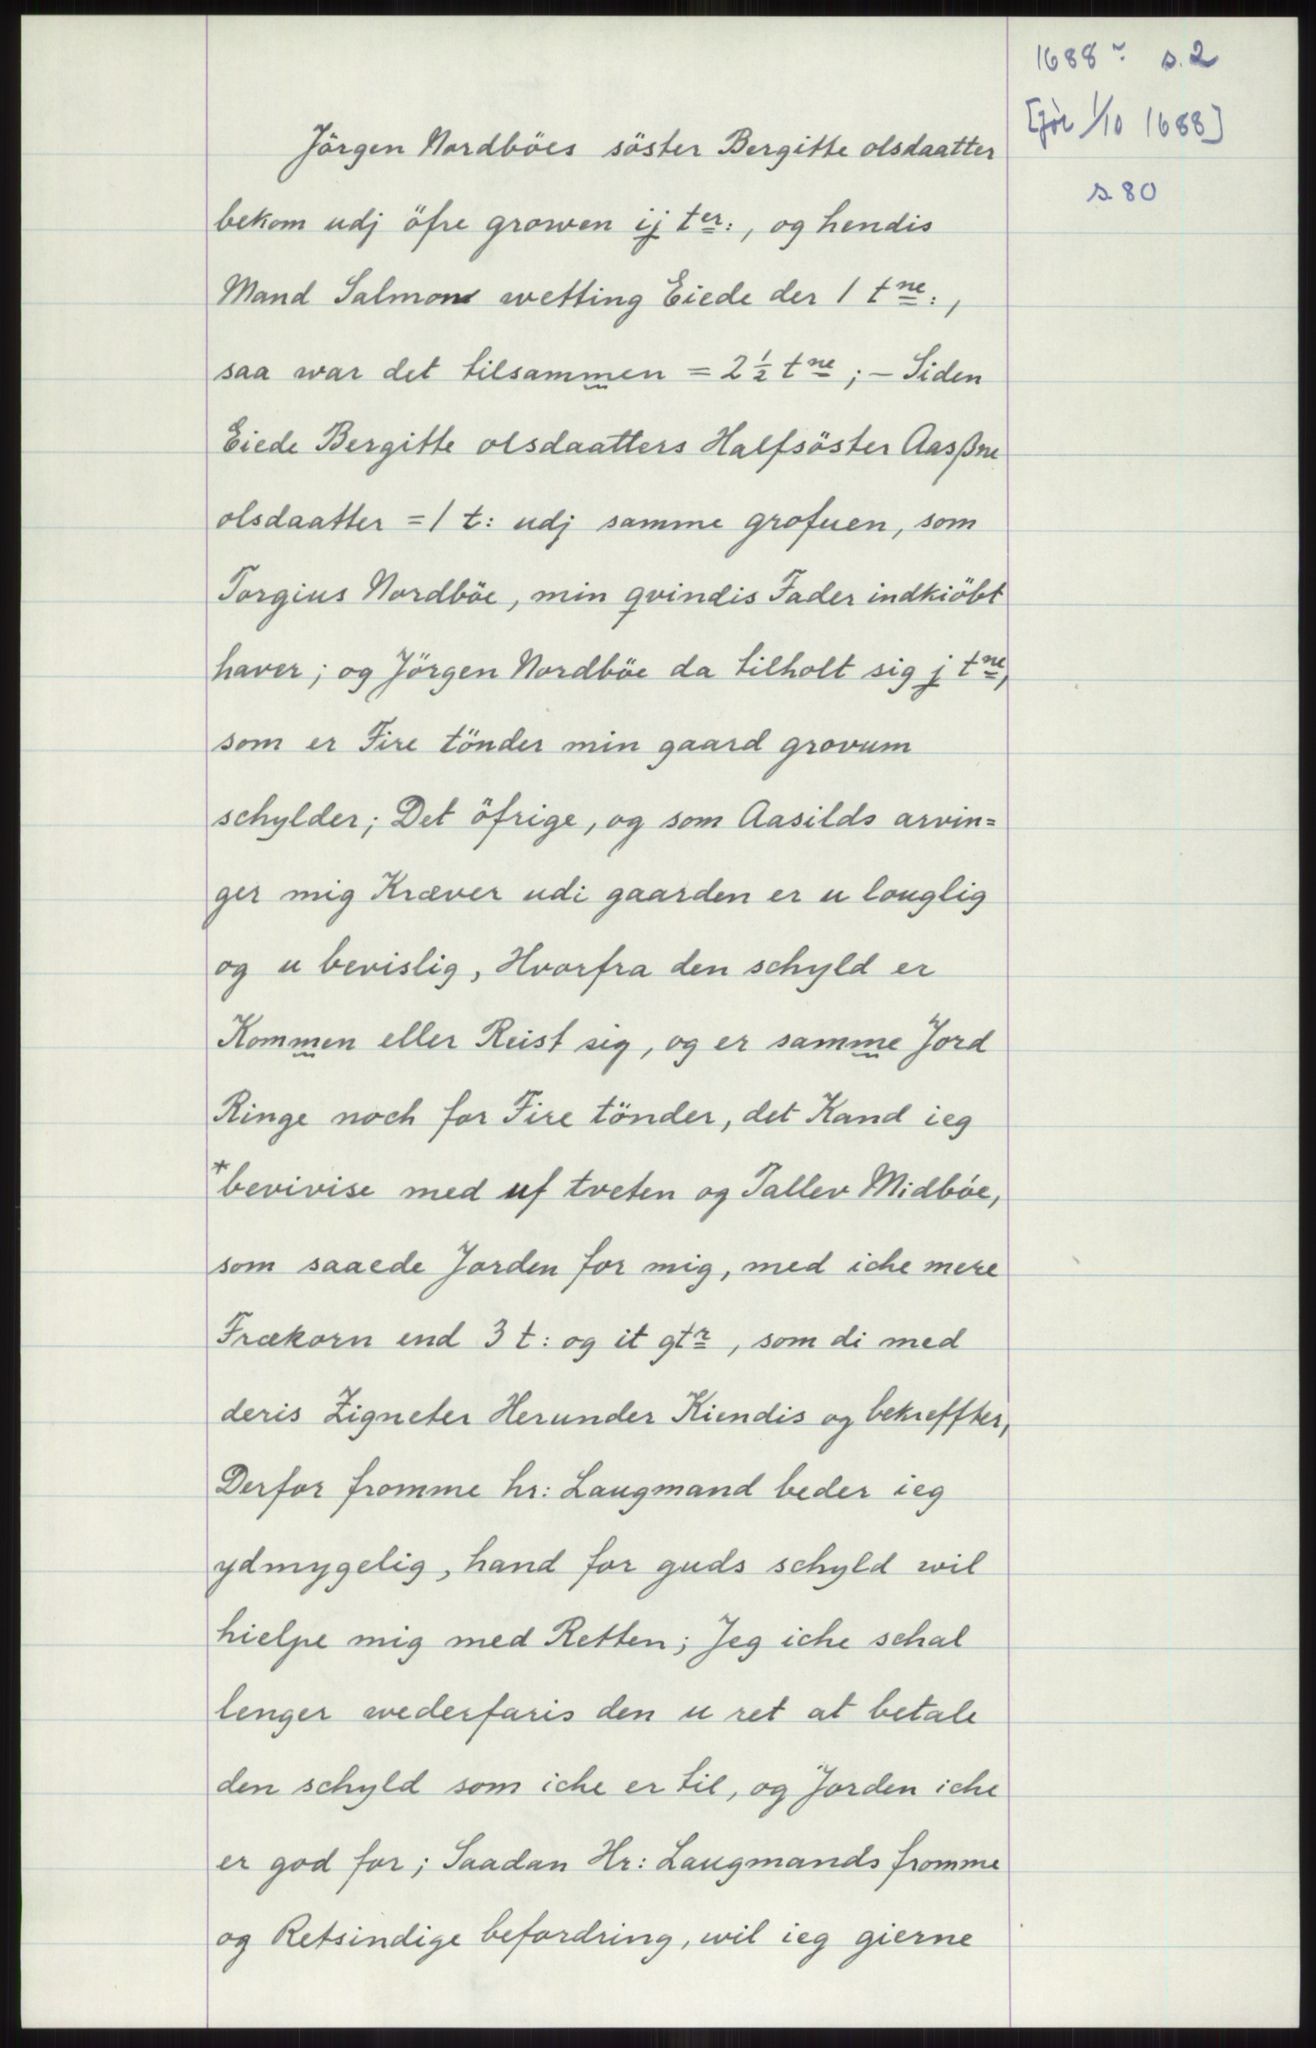 1688 s. 2
[før 1/10 1688]
s 80
Jörgen Nordböes söster Bergitte olsdaatter
bekom udj öfre growen ij ter:, og hendis
Mand Salmon wetting Eiede der 1 tne:,
saa war det tilsammen = 2 1/2 tne ; – Siden
Eiede Bergitte olsdaatters Halfsöster Aasßne
olsdaatter = 1 t: udj samme grofuen, som
Torgius Nordböe, min qvindis Fader indkiöbt
haver ; og Jörgen Nordböe da tilholt sig j tne,
som er Fire tönder min gaard grovum
schylder; Det öfrige, og som Aasilds arvin=
ger mig Kræver udi gaarden er u louglig
og u bevislig, Hvorfra den schyld er
Kommen eller Reist sig, og er samme Jord
Ringe noch for Fire tönder, det Kand ieg
*bevivise med uf tveten og Tallev Midböe,
som saaede Jorden for mig, med iche mere
Frækorn end 3 t: og it qtr, som di med
deris Zigneter Herunder Kiendis og bekreffter,
Derfor fromme hr: Laugmand beder ieg
ydmygelig, hand for guds schyld wil
hielpe mig med Retten; Jeg iche schal
lenger wederfaris den u ret at betale
den schyld som iche er til, og Jorden iche
er god for ; Saadan Hr: Laugmands fromme
og Retsindige befordring, wil ieg gierne